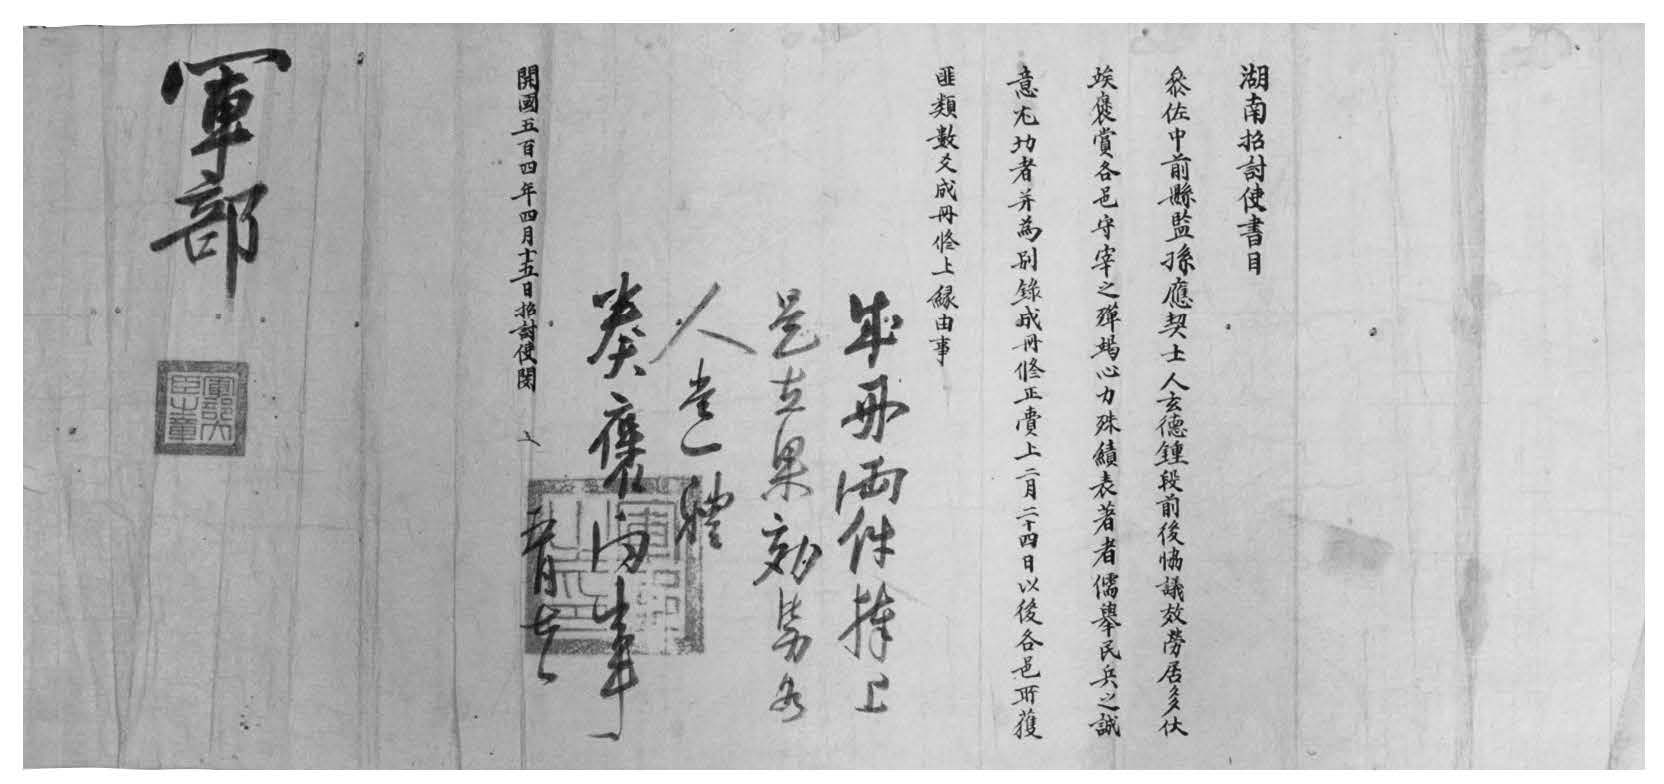 湖南招討使書目
叅佐中前縣監孫應契士人玄德鍾段前後恊議效勞居多伏
竢褒賞各邑守宰之殫竭心力殊績表著者儒擧民兵之誠
意尤功者并爲別錄成冊修正賫上二月二十四日以後各邑所獲
匪類數爻成冊修上緣由事
成冊兩件捧上
是在果効勞各
人壹體
褒
事
開國五百四年四月十五日招討使閔
五月
軍部
軍部大臣之章